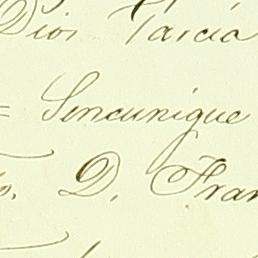 Dios Garcia
= Sencunique
D. Fran